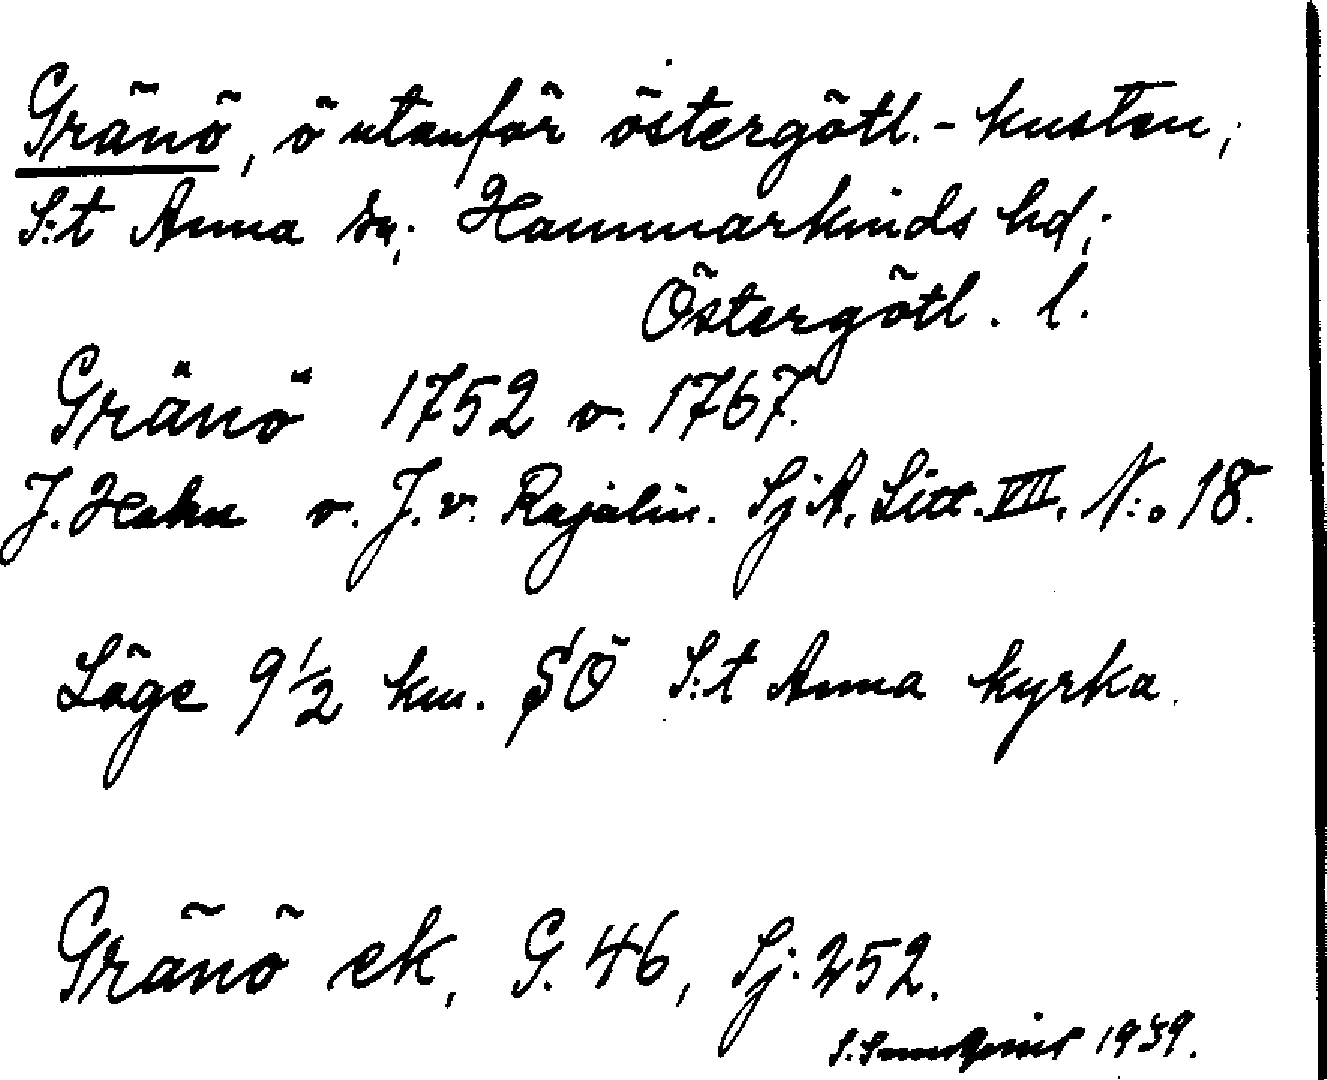 Gränö, ö utanför östergötl.-kusten,
S:t Anna sn; Hammarkinds hd;
Östergötl. l.
Gränö 1752 o. 1767.
J. Hahn o. J. v. Rajalin. SjA, Litt. VII, N:o 18.
Läge 9 1/2 km. SÖ S:t Anna kyrka.
Gränö ek, G. 46, Sj. 252.
S. 1939.